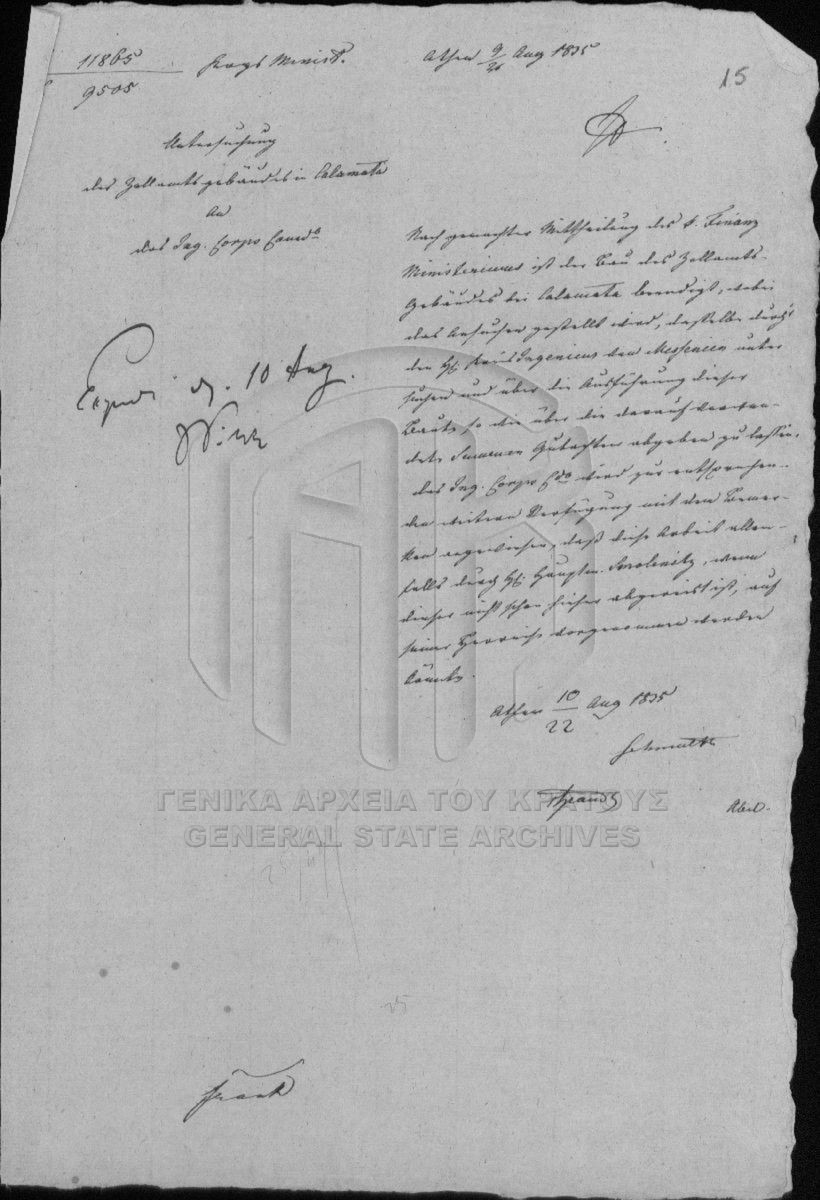 11865
9505
Kregs Minist.
Athen 9/21 Aug 1835
15
Untersuchung
des Zollamtsgebäudes in Calamata
An
das Ing. Corps Comdo
Nach gemachter Mittheilung des k. Finanz
Ministeriums ist der Bau des Zollamts-
Gebäudes bei Calamata beendigt, wobei
das Ansuchen gestellt wird, dasselbe durch
den H. Kreis Ingenieur von Messenien unter
suchen und über die Ausführung dieser
Baute, so wie über die darauf verwen-
dete Summen Gutachten abgeben zu lassen.
Das Ing. Corps Cdo wird zur entsprechen-
den weitern Verfügung mit dem Bemer-
ken angewiesen, daß diese Arbeit allen-
falls durch H. Hauptm. , wenn
dieser nicht schon hieher abgereist ist, auf
seiner Herreise vorgenommen werden
könnte.
Athen 10/22 Aug 1835
Schmaltz
Exped. d. 10 Aug.
ΓΕΝΙΚΑ ΑΡΧΕΙΑ ΤΟΥ ΚΡΑΤΟΥΣ
GENERAL STATE ARCHIVES
25
Frank